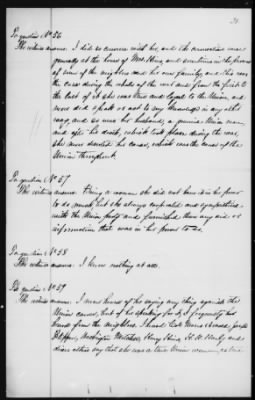 To question No 56
The witness answers: I did so converse with her, and the conversations were
generally at the house of Mrs. King and sometimes in the presence
of some of the neighbors and her own family, and this was
the case during the whole of the war and from the first to
the last of it she was true and loyal to the Union, and
never did speak or act to my knowledge in any other
way, and so was her husband, a genuine Union man
and after his death, which took place during the war,
she never deserted his cause, which was the cause of the
Union throughout.
To question No 57
The witness answers: Being a woman she did not have it in her power
to do much, but she always cooperated and sympathized
with the Union party and furnished them any aid or
information that was in her power to do.
To question No 58
The witness answers: I know nothing at all.
To question No 59
The witness answers: I never heard of her saying any thing against the
Union cause, but of her speaking for it, I frequently have
heard from the neighbors. I heard Joseph
Washington Henry King, and
others say that she was a true Union woman,